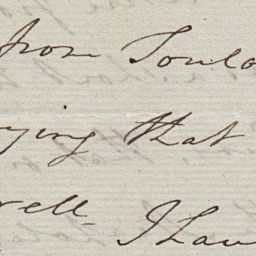 from Toulo
ying that
well I hav